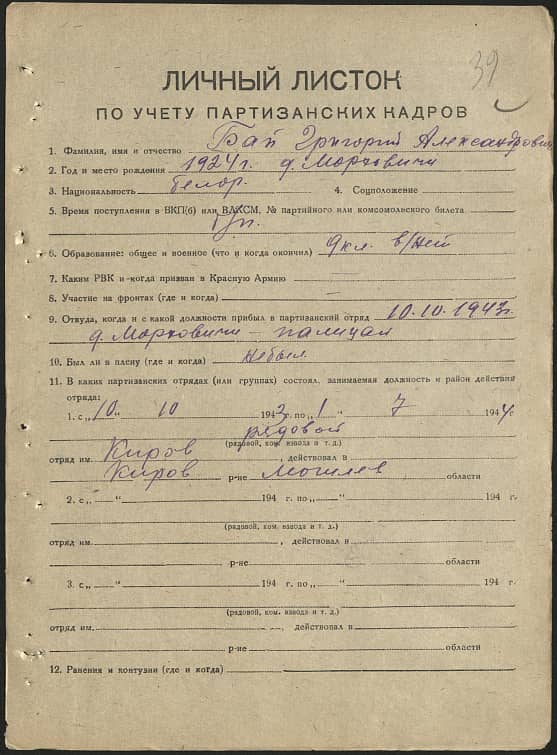 39
ЛИЧНЫЙ ЛИСТОК
ПО УЧЕТУ ПАРТИЗАНСКИХ КАДРОВ
1. Фамилия, имя и отчество Бай Григорий Александрович
2. Год и место рождения 1924 г. д. Морховичи
3. Национальность белор. 4. Соцположение
5. Время поступления в ВКП(б) или ВЛКСМ, № партийного или комсомольского билета
б/п.
6. Образование: общее и военное (что и когда окончил) 9 кл. в/нет
7. Каким РВК и когда призван в Красную Армию —
8. Участие на фронтах (где и когда) —
9. Откуда, когда и с какой должности прибыл в партизанский отряд 10.10.1943 г.
д. Морховичи - полицая
10. Был ли в плену (где и когда) не был
11. В каких партизанских отрядах (или группах) состоял, занимаемая должность и район действий
отряда:
1. с „10“ 10 1943 г. по „1“ 7 1944 г.
рядовой
(рядовой, ком. взвода и т. д.)
отряд им. Киров , действовал в
Киров р-не Могилев области
2. с „ “ 194 г. по „ “ 194 г.
(рядовой, ком. взвода и т. д.)
отряд им. , действовал в
р-не области
3. с „ “ 194 г. по „ “ 194 г.
(рядовой, ком. взвода и т. д.)
отряд им. , действовал в
р-не области
12. Ранения и контузии (где и когда)